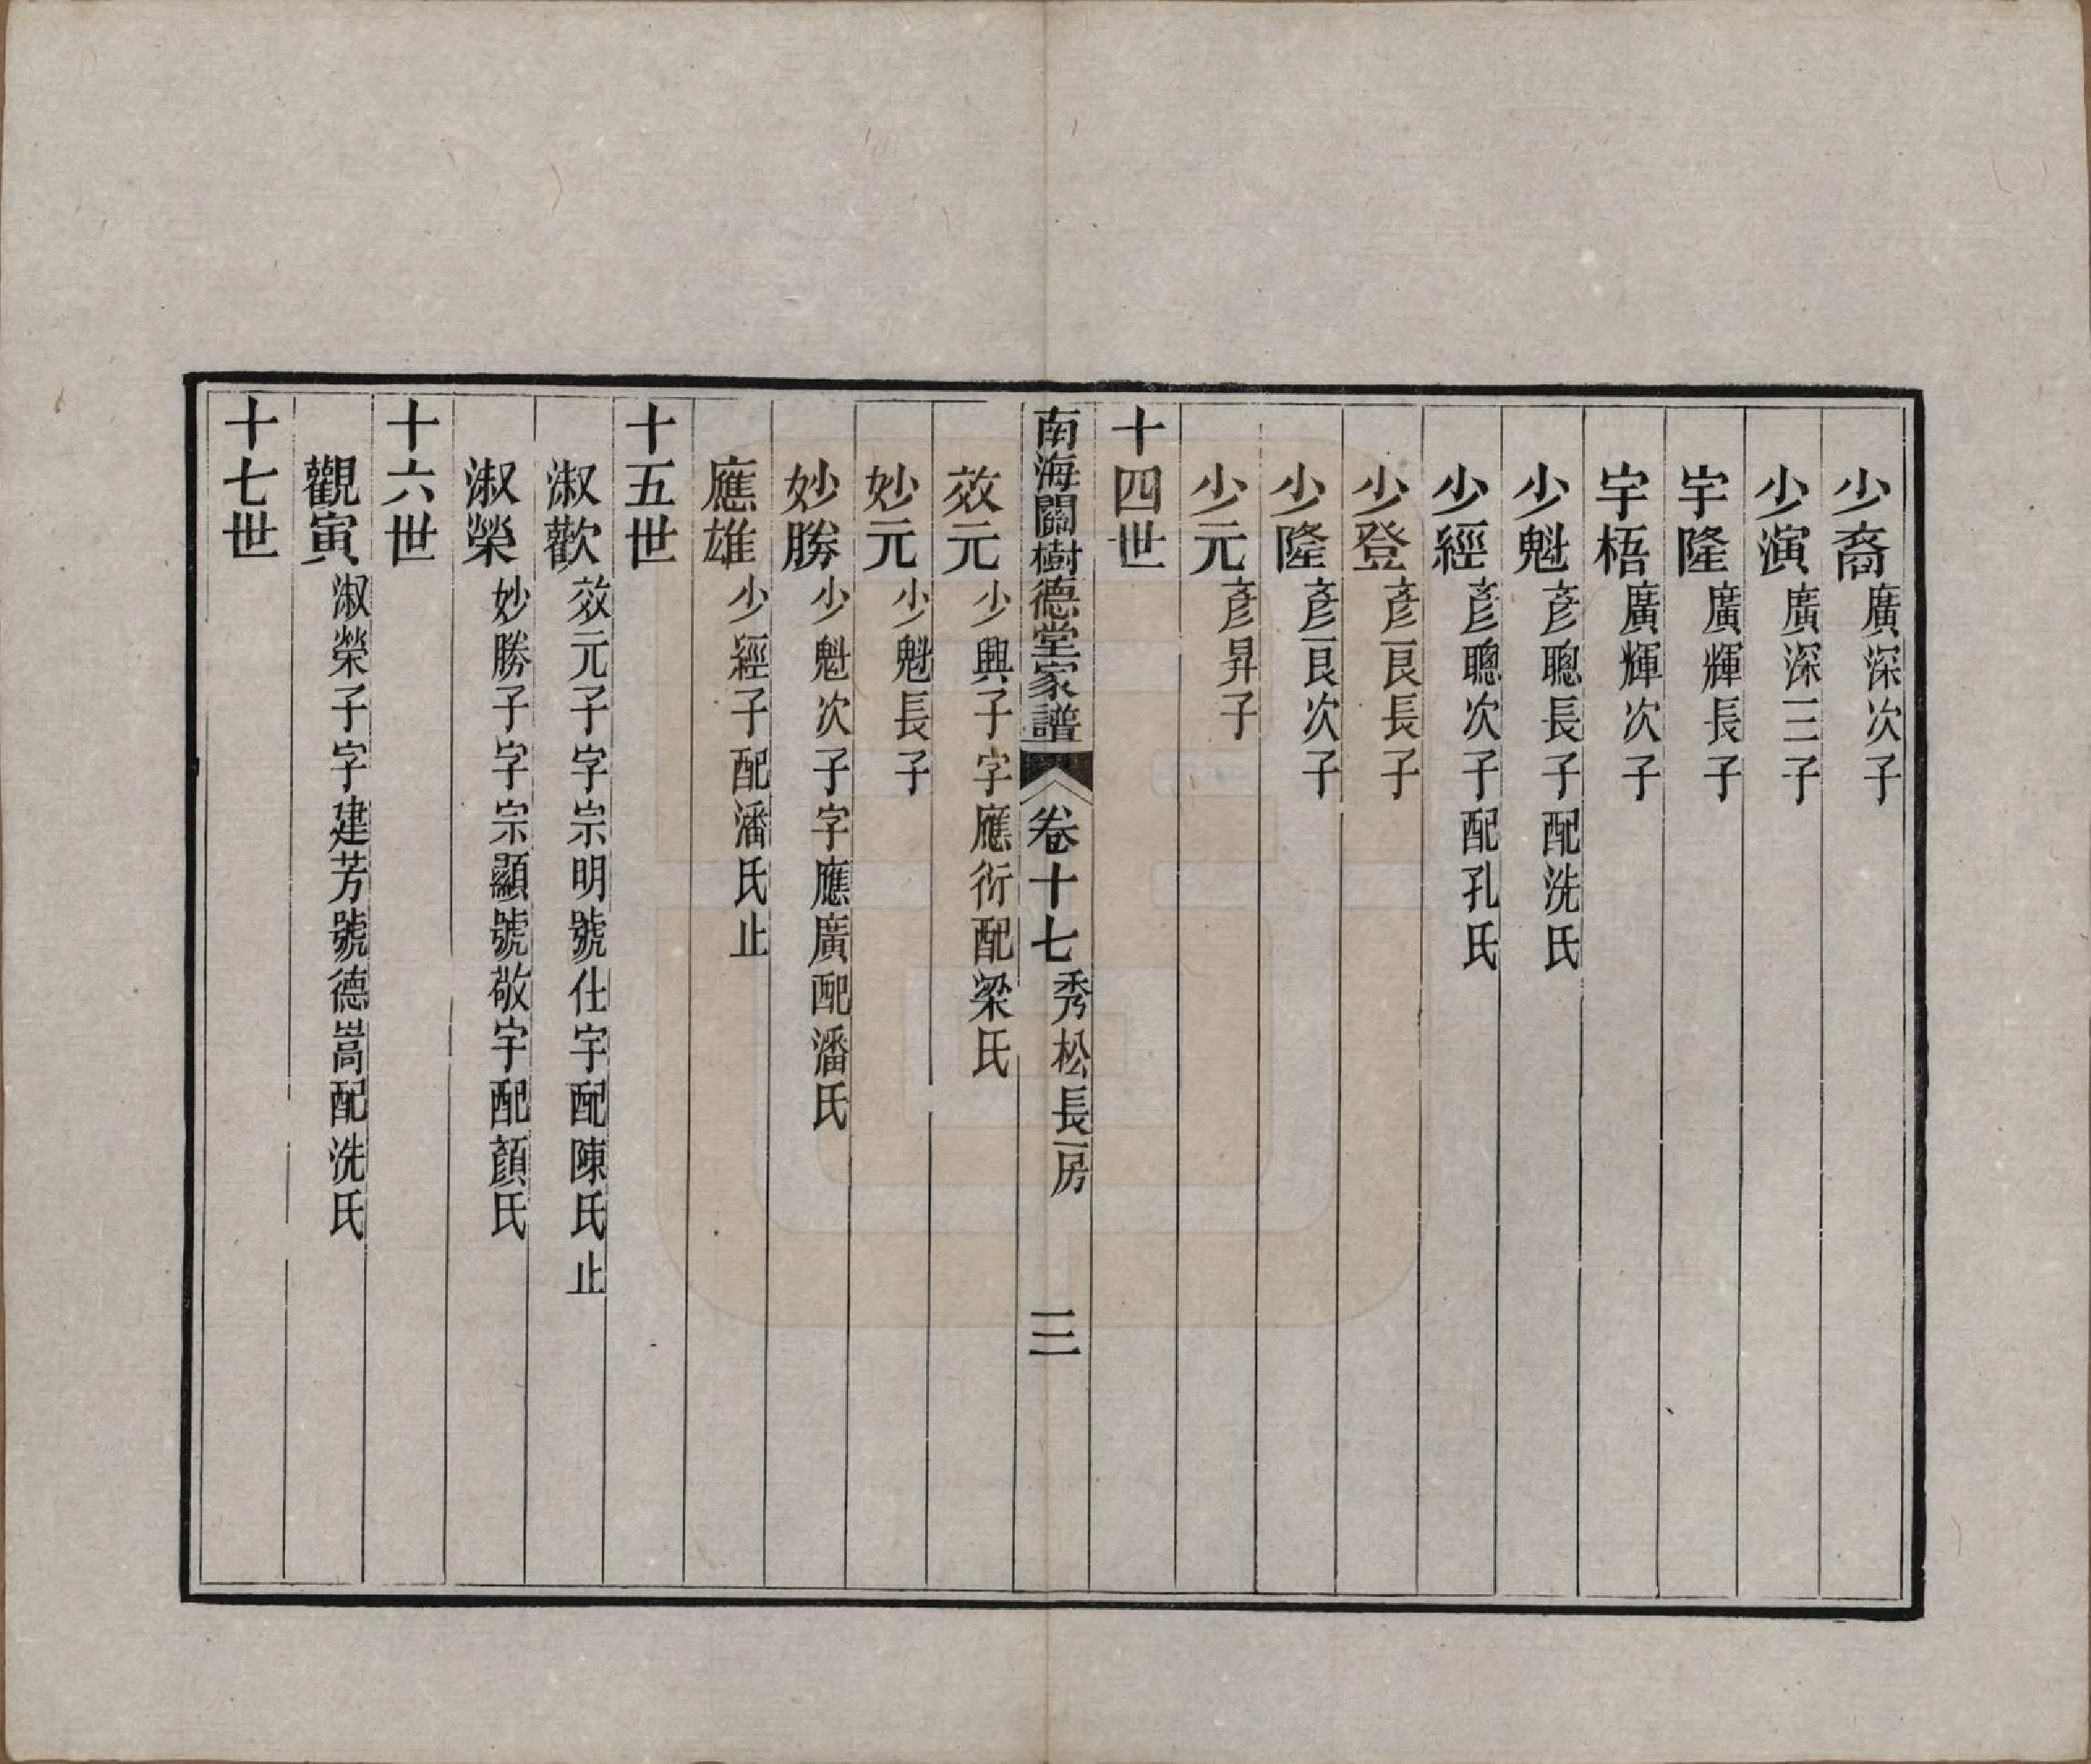 少裔廣深次子
少演廣深三子
宇隆廣輝長子
宇梧廣輝次子
少魁彥聰長子配洗氏
少經彥聰次子配孔氏
少登彥艮長子
少隆彥艮次子
少元彥昇子
十四世
南海關樹德堂家譜 卷十七 秀松長房 三
效元少興子字應衍配梁氏
妙元少魁長子
妙勝少魁次子字應廣配潘氏
應雄少經子配潘氏止
十五世
淑歡效元子字宗明號仕宇配陳氏止
淑榮妙勝子字宗顯號敬宇配顏氏
十六世
觀寅淑榮子字建芳號德嵩配洗氏
十七世